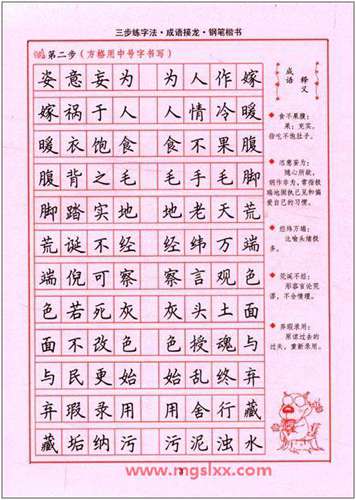 三步练字法·成语接龙·钢笔楷书
第二步(方格用中号字书写)
姿意妄为 为人作嫁
嫁祸于人 人情冷暖
暖衣饱食 食不果腹
腹背之毛 毛手毛脚
脚踏实地 地老天荒
荒诞不经 经纬万端
端倪可察 察言观色
色若死灰 灰头土面
面不改色 色授魂与
与民更始 始乱终弃
弃瑕录用 用舍行藏
藏垢纳污 污泥浊水
成语释义
食不果腹:
果:充实。
指吃不饱肚子。
恣意妄为:
随心所欲,
胡作非为。常指极
端地固执己见和偏
爱自己的习惯。
经纬万端:
比喻头绪极
多。
荒诞不经:
形容言论荒
谬,不合情理。
弃瑕录用:
原谅过去的
过失,重新录用。
www.mgslxx.com